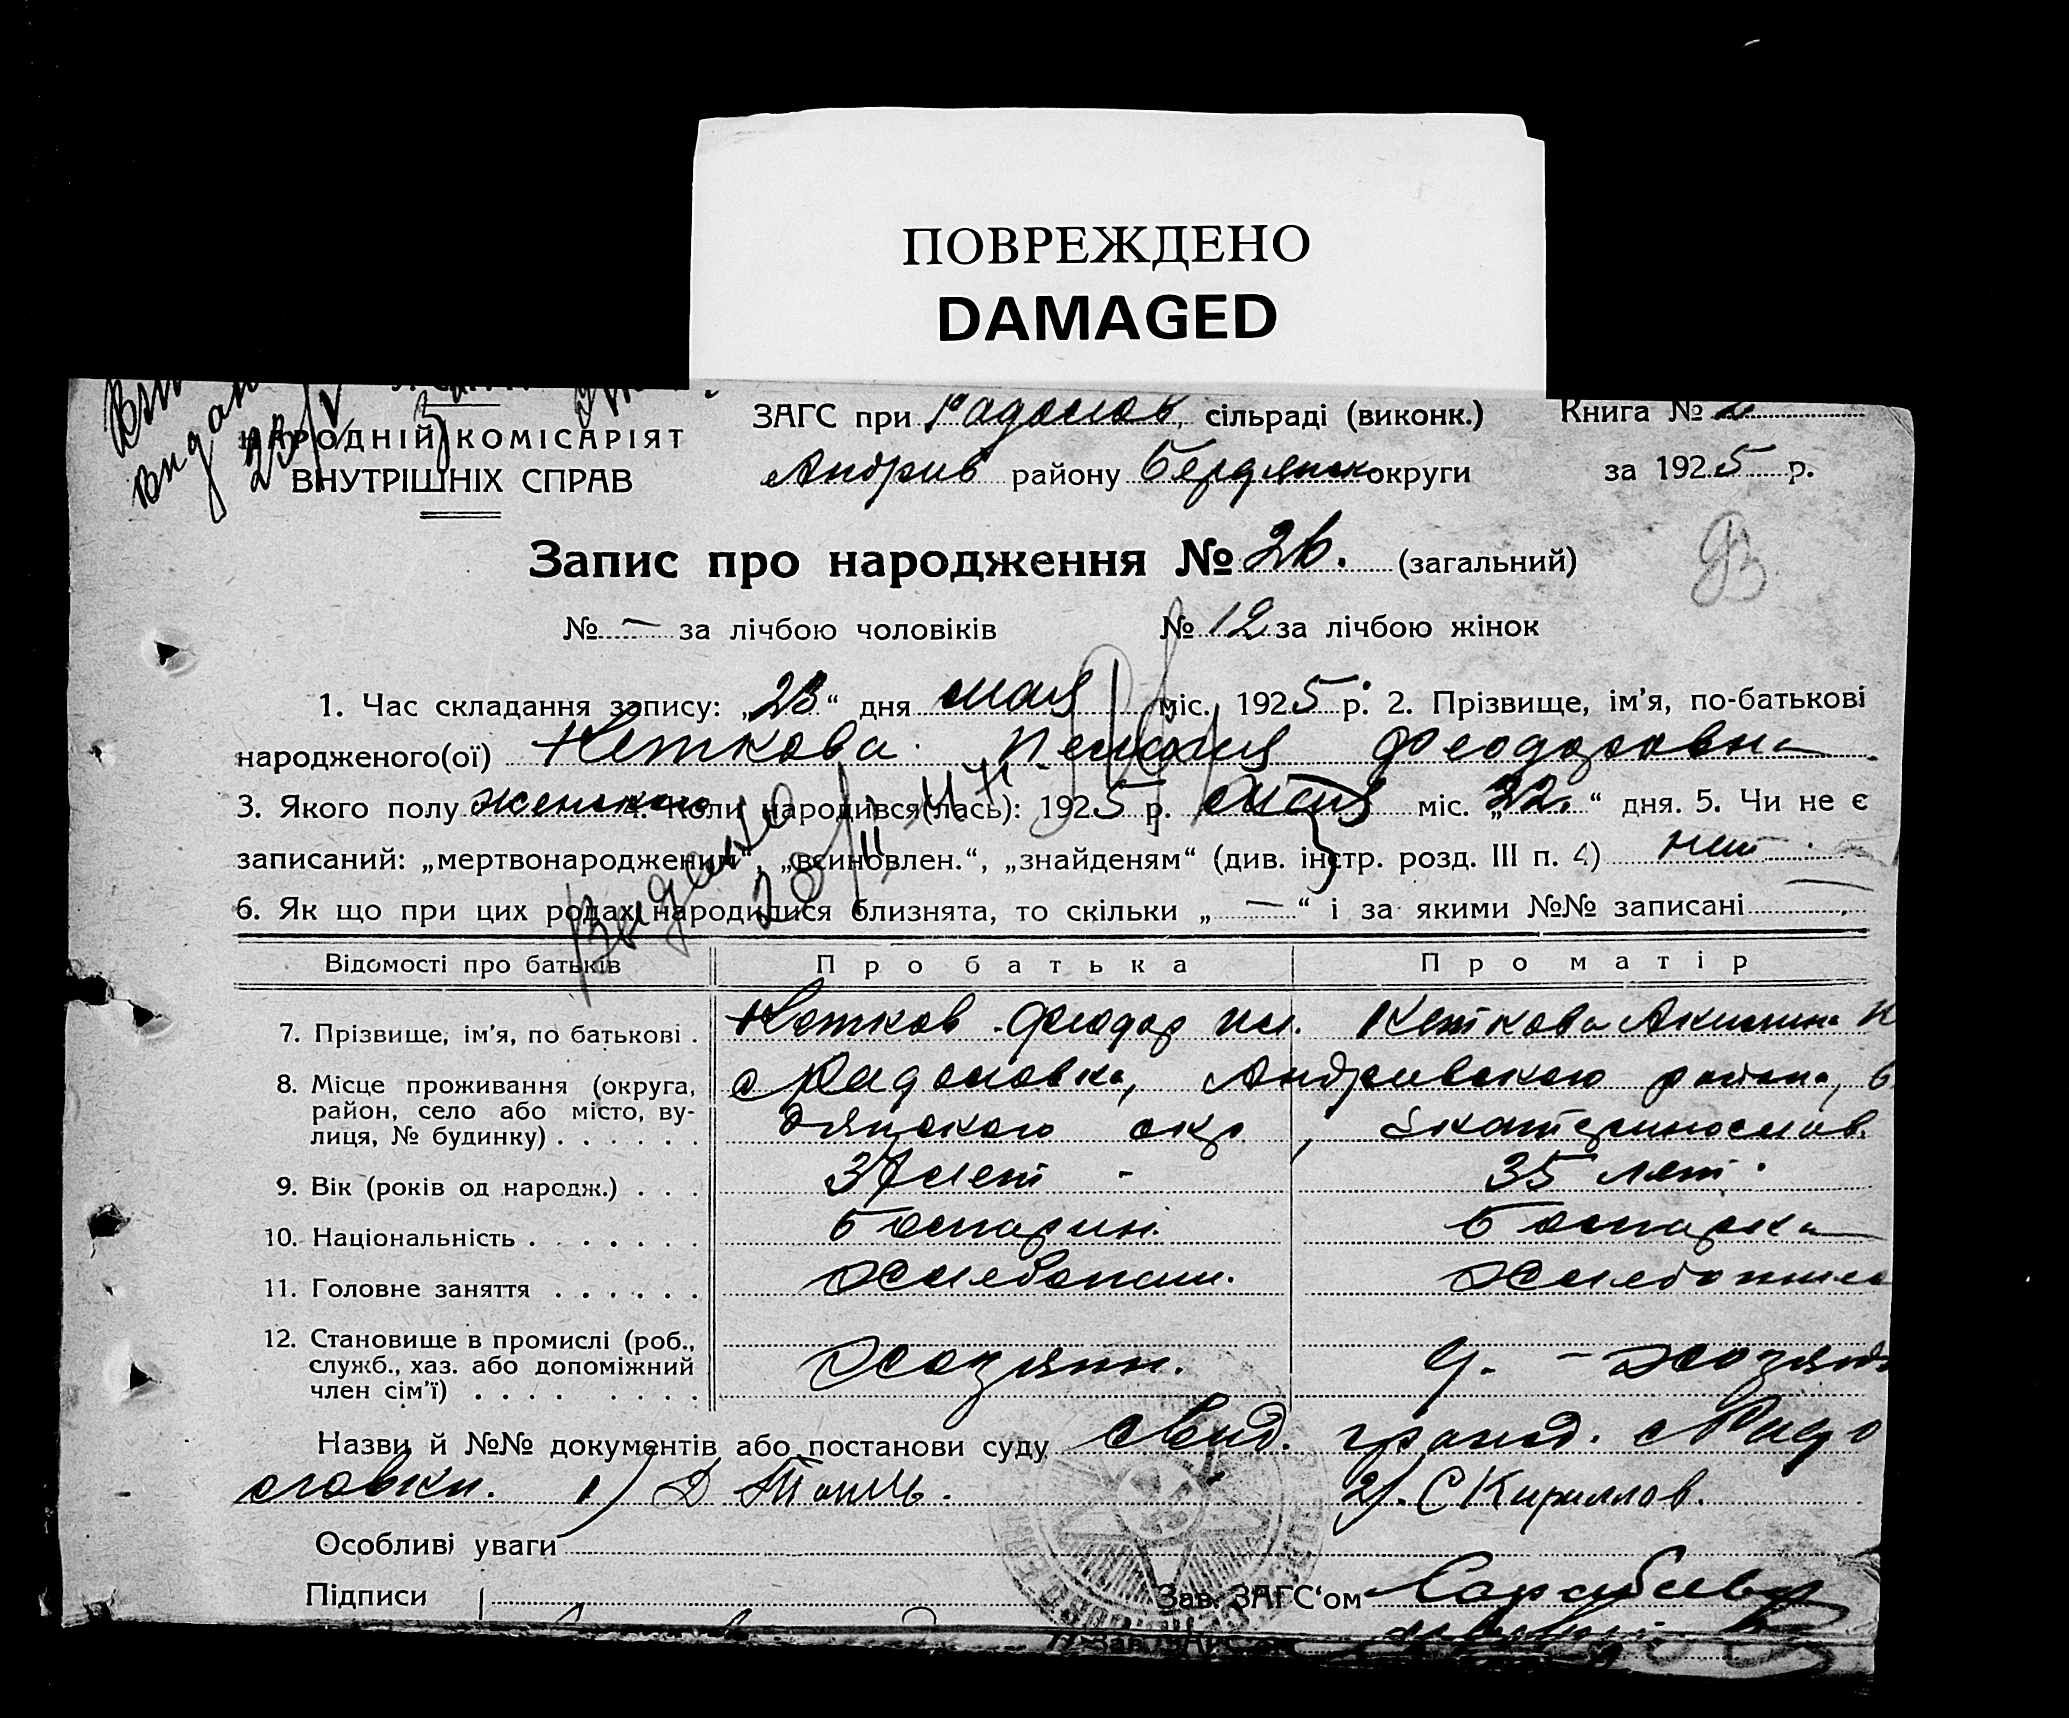 ПОВРЕЖДЕНО
DAMAGED
ЗАГС при Радолов, сільраді (виконк.) Книга № 2
НАРОДНІЙ КОМІСАРІЯТ
ВНУТРІШНІХ СПРАВ
Андрив району Бердянск округи за 1925 р.
Запис про народження № 26. (загальний)
№ — за лічбою чоловіків № 12 за лічбою жінок
1. Час складання запису: „23“ дня мая міс. 1925 р. 2. Прізвище, ім'я, по-батькові
народженого(ої) Кеткова Феодоровна
3. Якого полу женского 4. Коли народився(лась): 1925 р. мая міс. „22.“ дня. 5. Чи не є
записаний: „мертвонароджений“, „всиновлен.“, „знайденям“ (див. інстр. розд. III п. 4) нет
6. Як що при цих родах народилися близнята, то скільки „ — “ і за якими №№ записані —
Выдано
Відомості про батьків Про батька Про матір
7. Прізвище, ім'я, по батькові . Кетков Феодор Кеткова Акилина
8. Місце проживання (округа, район, село або місто, вулиця, № будинку) . . . . . . с Радоловка, Андривского района, Б
дянского окр, Екатеринослав.
9. Вік (років од народж.) . . . 37 лет - 35 лет.
10. Національність . . . . . . . болгарин. болгарка
11. Головне заняття . . . . . . Хлебопаш. Хлебопаш
12. Становище в промислі (роб., служб., хаз. або допоміжний член сім'ї) . . . . . . . . Хозяин. Д. - Хозяи
Назви й №№ документів або постанови суду Свид. гражд. с Радо
ловки. 1) Д 2). С Кириллов.
Особливі уваги
Підписи Зав. ЗАГС'ом